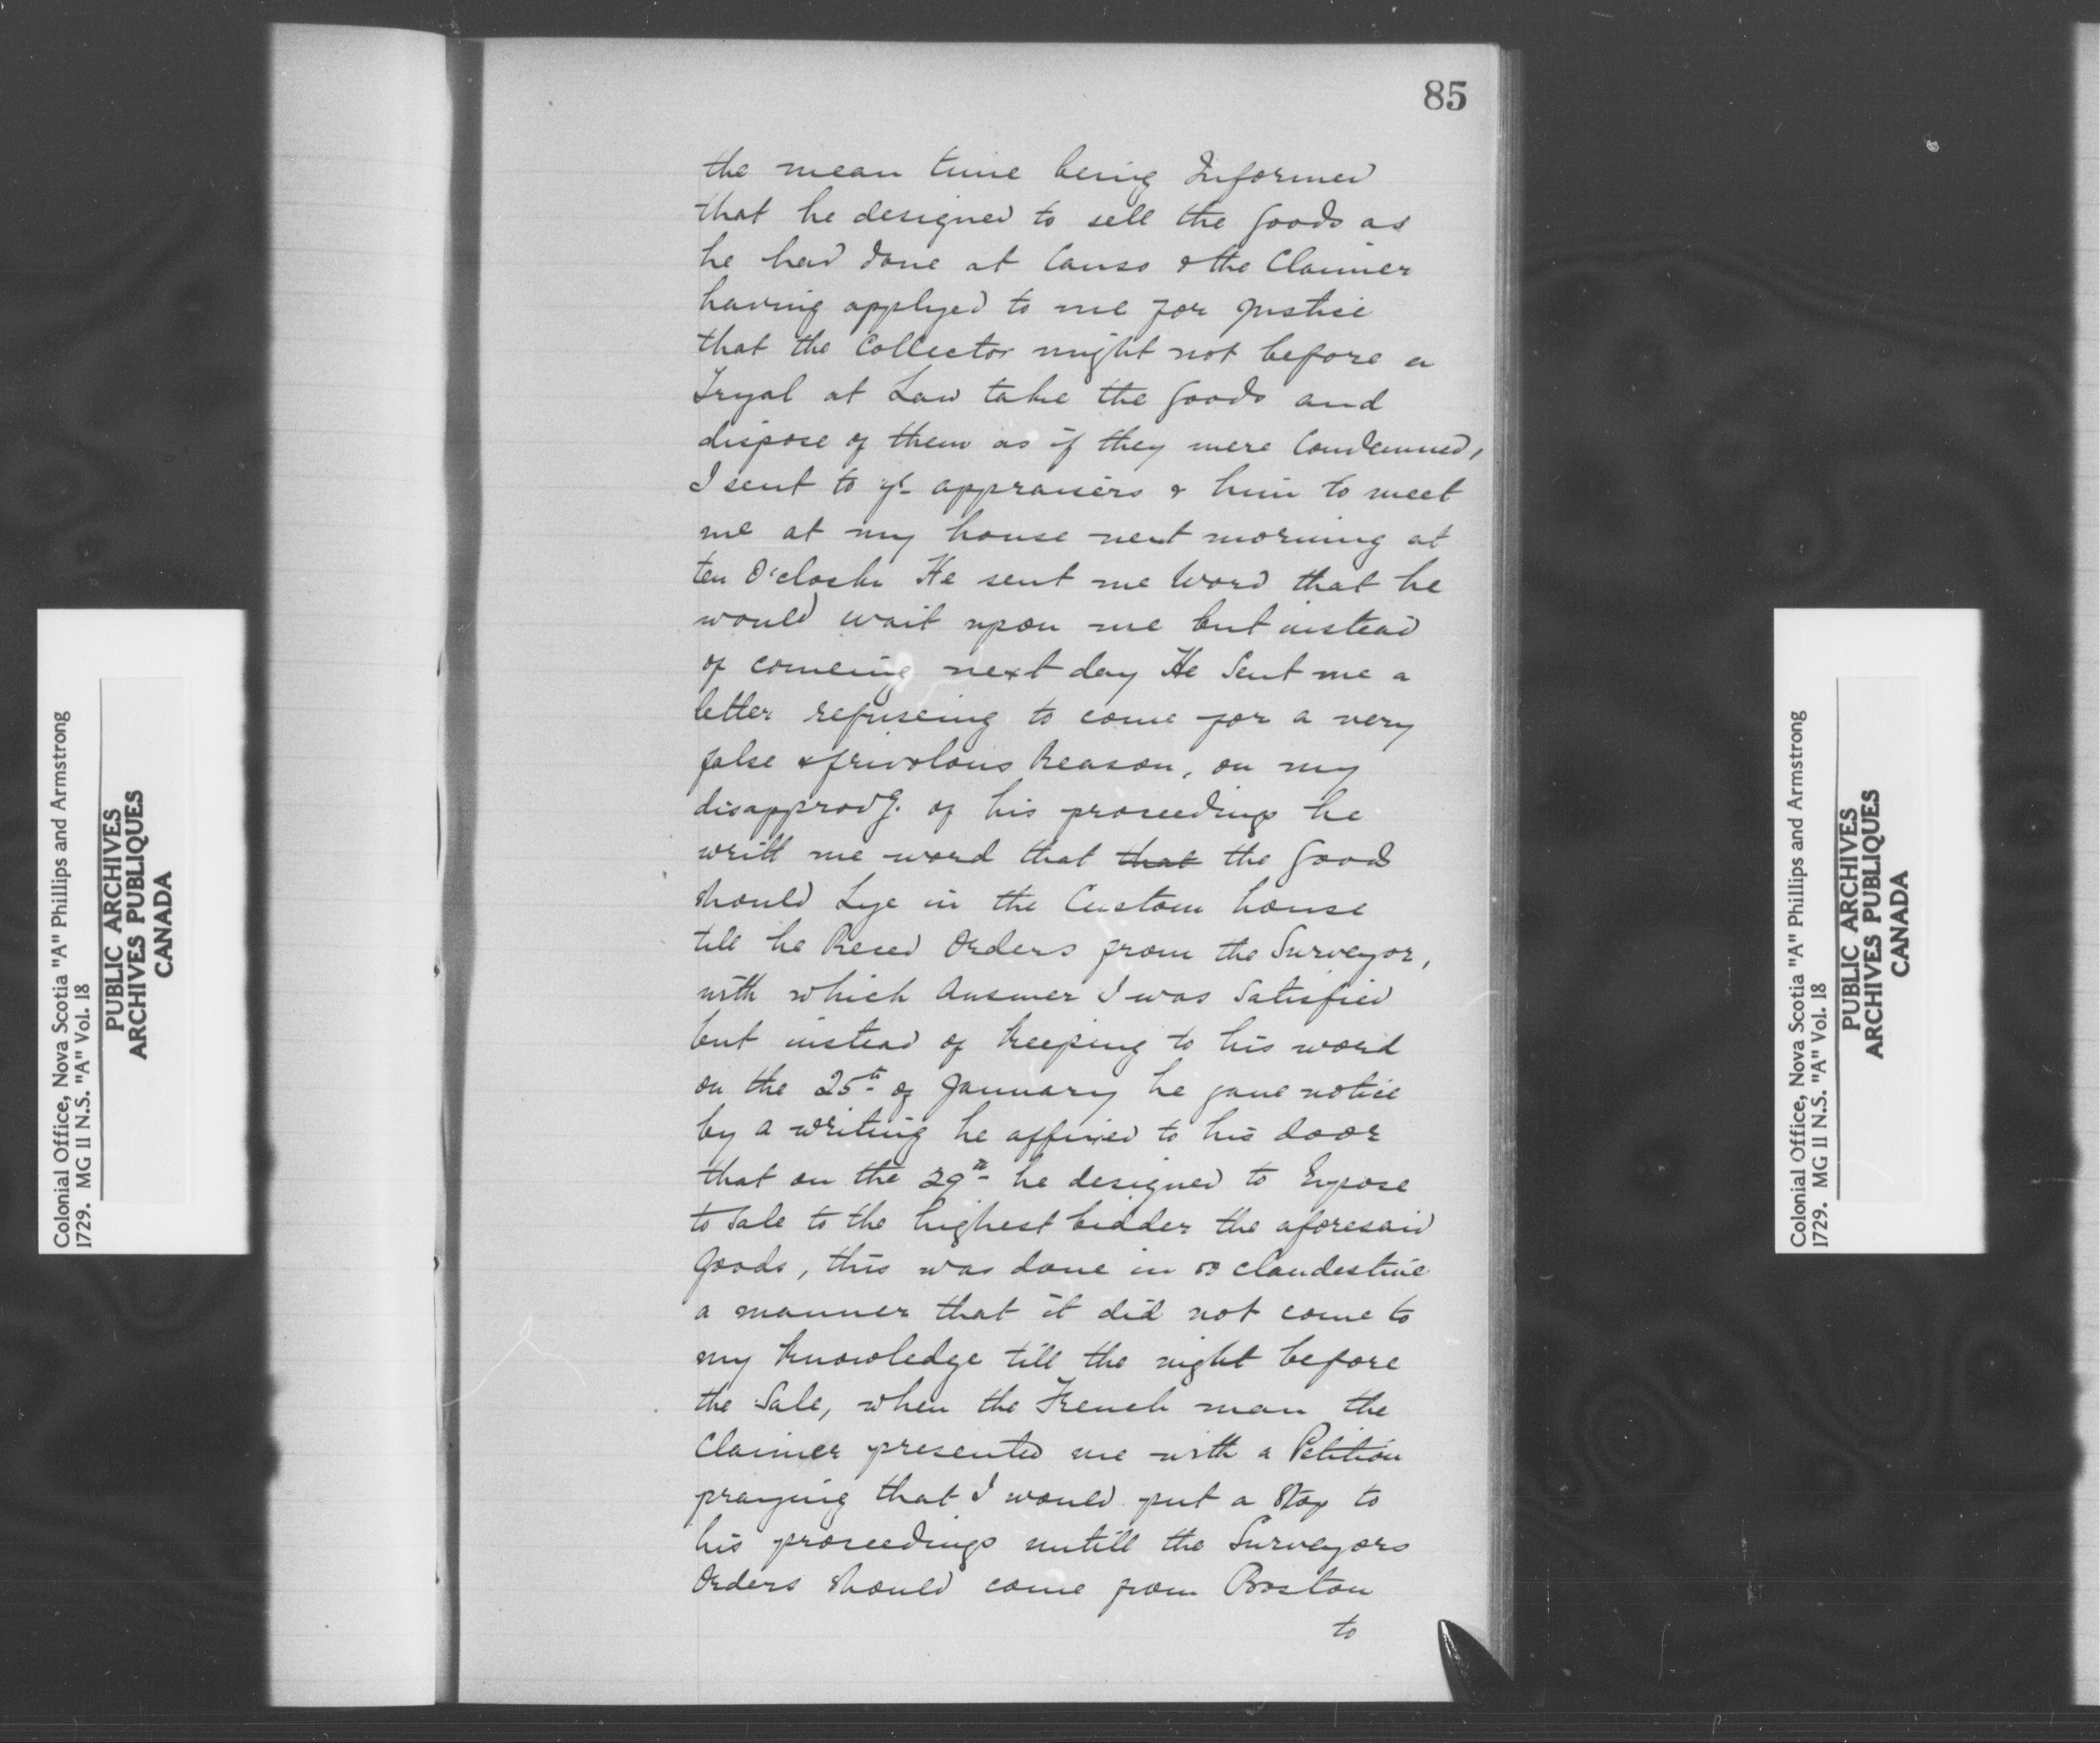 85
the mean time being Informed
that he designed to sell the goods as
he had done at Canso & the Claimer
having applyed to me for Justice
that the Collector might not before a
Tryal at Law take the goods and
dispose of them as if they were Condemned,
I sent to ye appraisers & him to meet
me at my house next morning at
ten O'clocke He sent me Word that he
would wait upon me but instead
of comeing next day He Sent me a
letter refuseing to come for a very
false & frivolous Reason, on my
disapprovg. of his proceedings he
writt me word that that the Goods
should Lye in the Custom house
till he Reced Orders from the Surveyor,
with which Answer I was Satisfied
but instead of keeping to his word
on the 25th of January he gave notice
by a writing he affixed to his door
that on the 29th he designed to Expose
to Sale to the highest bidder the aforesaid
Goods, this was done in so clandestine
a manner that it did not come to
my knowledge till the night before
the Sale, when the French man the
Claimer presented me with a Petition
praying that I would put a Stop to
his proceedings untill the Surveyors
Orders should come from Boston
to
Colonial Office, Nova Scotia "A" Phillips and Armstrong
1729. MG II N.S. "A" Vol. 18
PUBLIC ARCHIVES
ARCHIVES PUBLIQUES
CANADA
Colonial Office, Nova Scotia "A" Phillips and Armstrong
1729. MG II N.S. "A" Vol. 18
PUBLIC ARCHIVES
ARCHIVES PUBLIQUES
CANADA